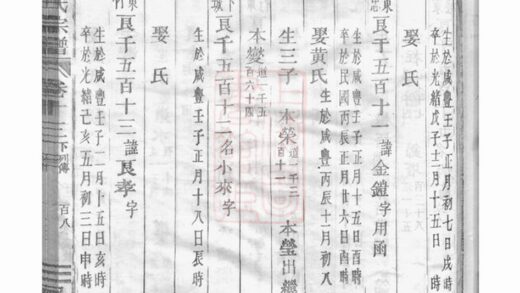 生於咸豐壬子正月初七日戌時
卒於光緒戊子十二月十五日
娶 氏
良千五百十一 諱金鐙 字用函
生於咸豐壬子正月十五日酉時
卒於民國丙辰正月廿六日酉時
娶黄氏 生於咸豐丙辰十一月初八
生三子 本榮 道一千二百十一 本瑩出繼
本變 道一千五百六十四
良千五百十二 名小來 字
生於咸豐壬子正月十八日辰時
娶 氏
良千五百十三 諱良孝 字
生於咸豐壬子二月十五日亥時
卒於光緒己亥五月初三日申時
氏宗譜
下列傳 百八